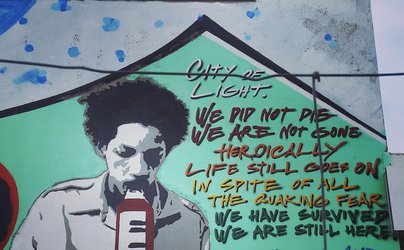 CITY OF
LIGHT.
WE DID NOT DIE
WE ARE NOT GONE
HEROICALLY
LIFE STILL GOES ON
IN SPITE OF ALL
THE QUAKING FEAR
WE HAVE SURVIVED
WE ARE STILL HERE.